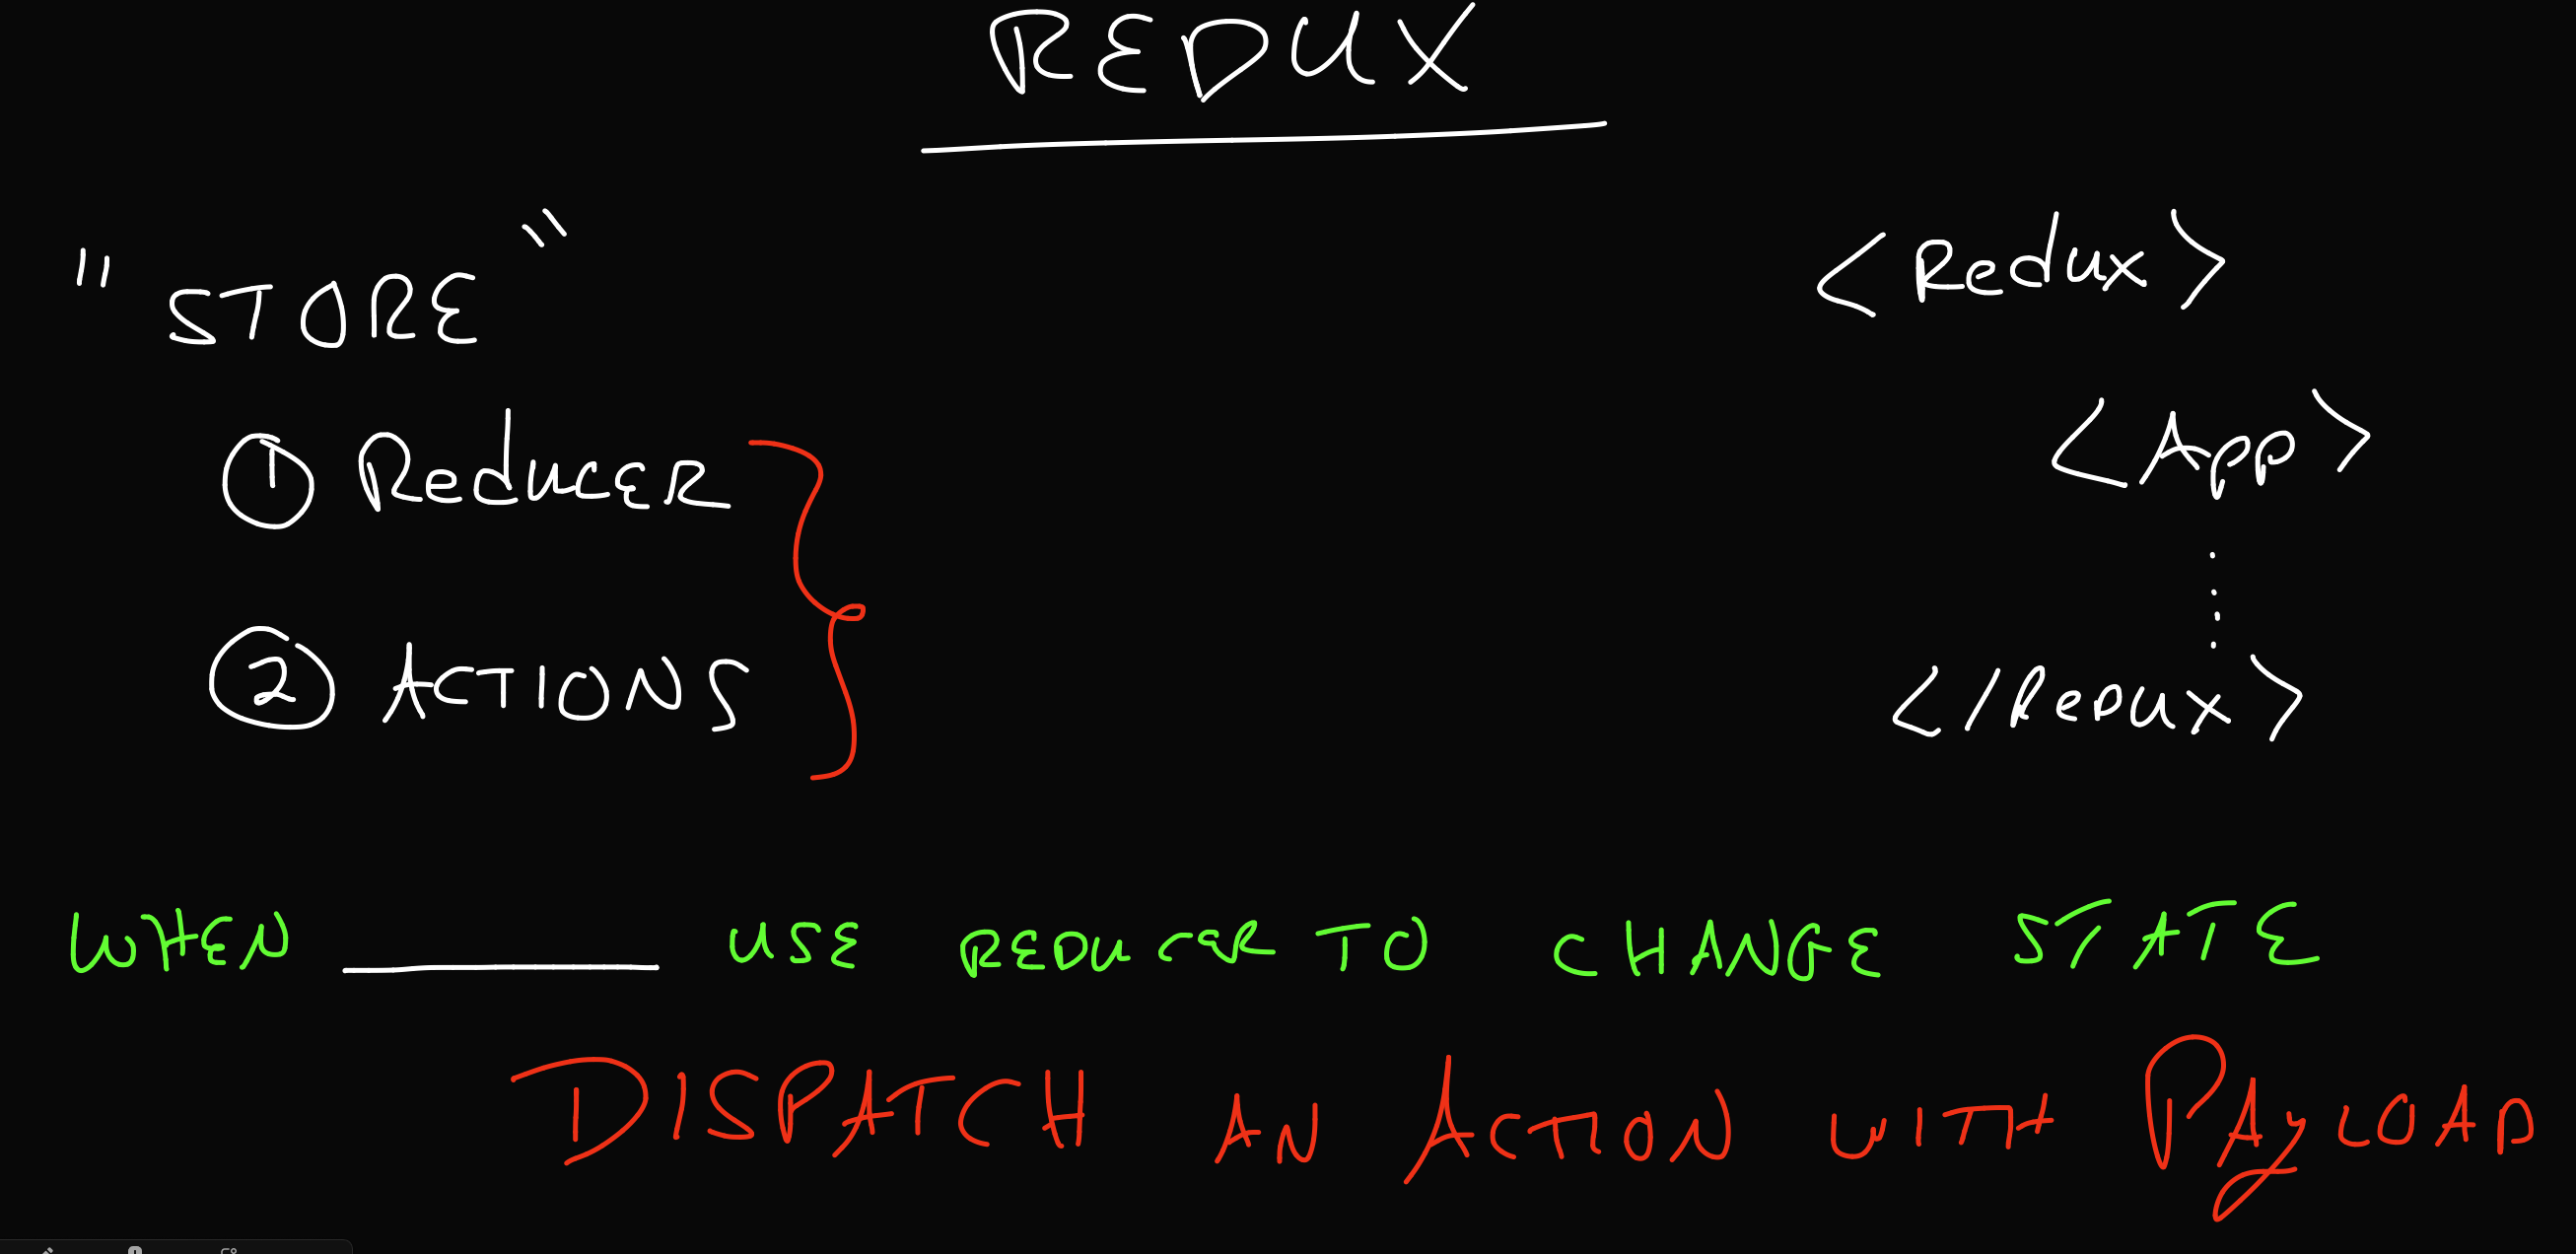 REDUX
"STORE"
① Reducer
② ACTIONS
<Redux>
<App>
</Redux>
WHEN ________ USE REDUCER TO CHANGE STATE
DISPATCH AN ACTION WITH PAYLOAD